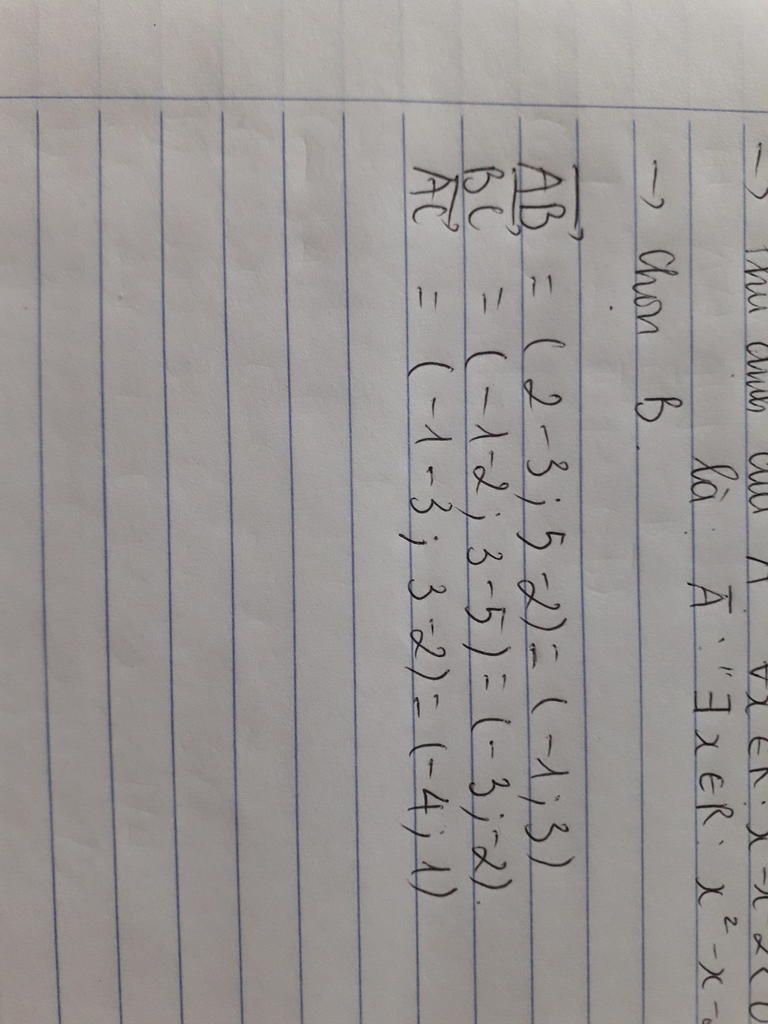 → Phủ định của A ∀x ∈ R: x - x - 2 < 0
là Ā: "∃x ∈ R: x² - x -
→ chọn B.
AB→ = (2-3; 5-2) = (-1; 3)
BC→ = (-1-2; 3-5) = (-3; -2).
AC→ = (-1-3; 3-2) = (-4; 1)